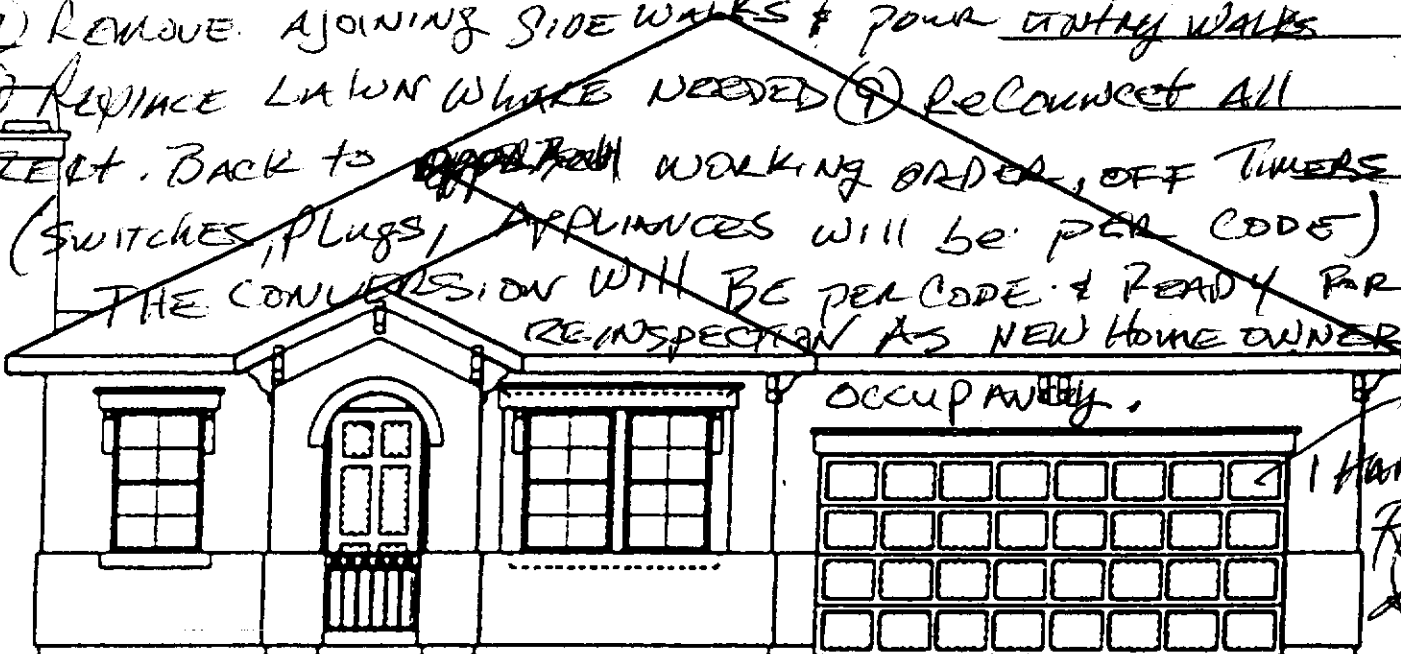 ) REMOVE AJOINING SIDE WALKS & POUR ENTRY WALKS
) REPLACE LAWN WHERE NEEDED ⑨ ReCONNECT All
. BACK to WORKING ORDER, OFF TIMERS
(SWITCHES, PLUGS, APPLIANCES will be PER CODE)
THE CONVERSION Will BE PER CODE & READY FOR
REINSPECTION AS NEW HOME OWNER
OCCUPANCY.
1